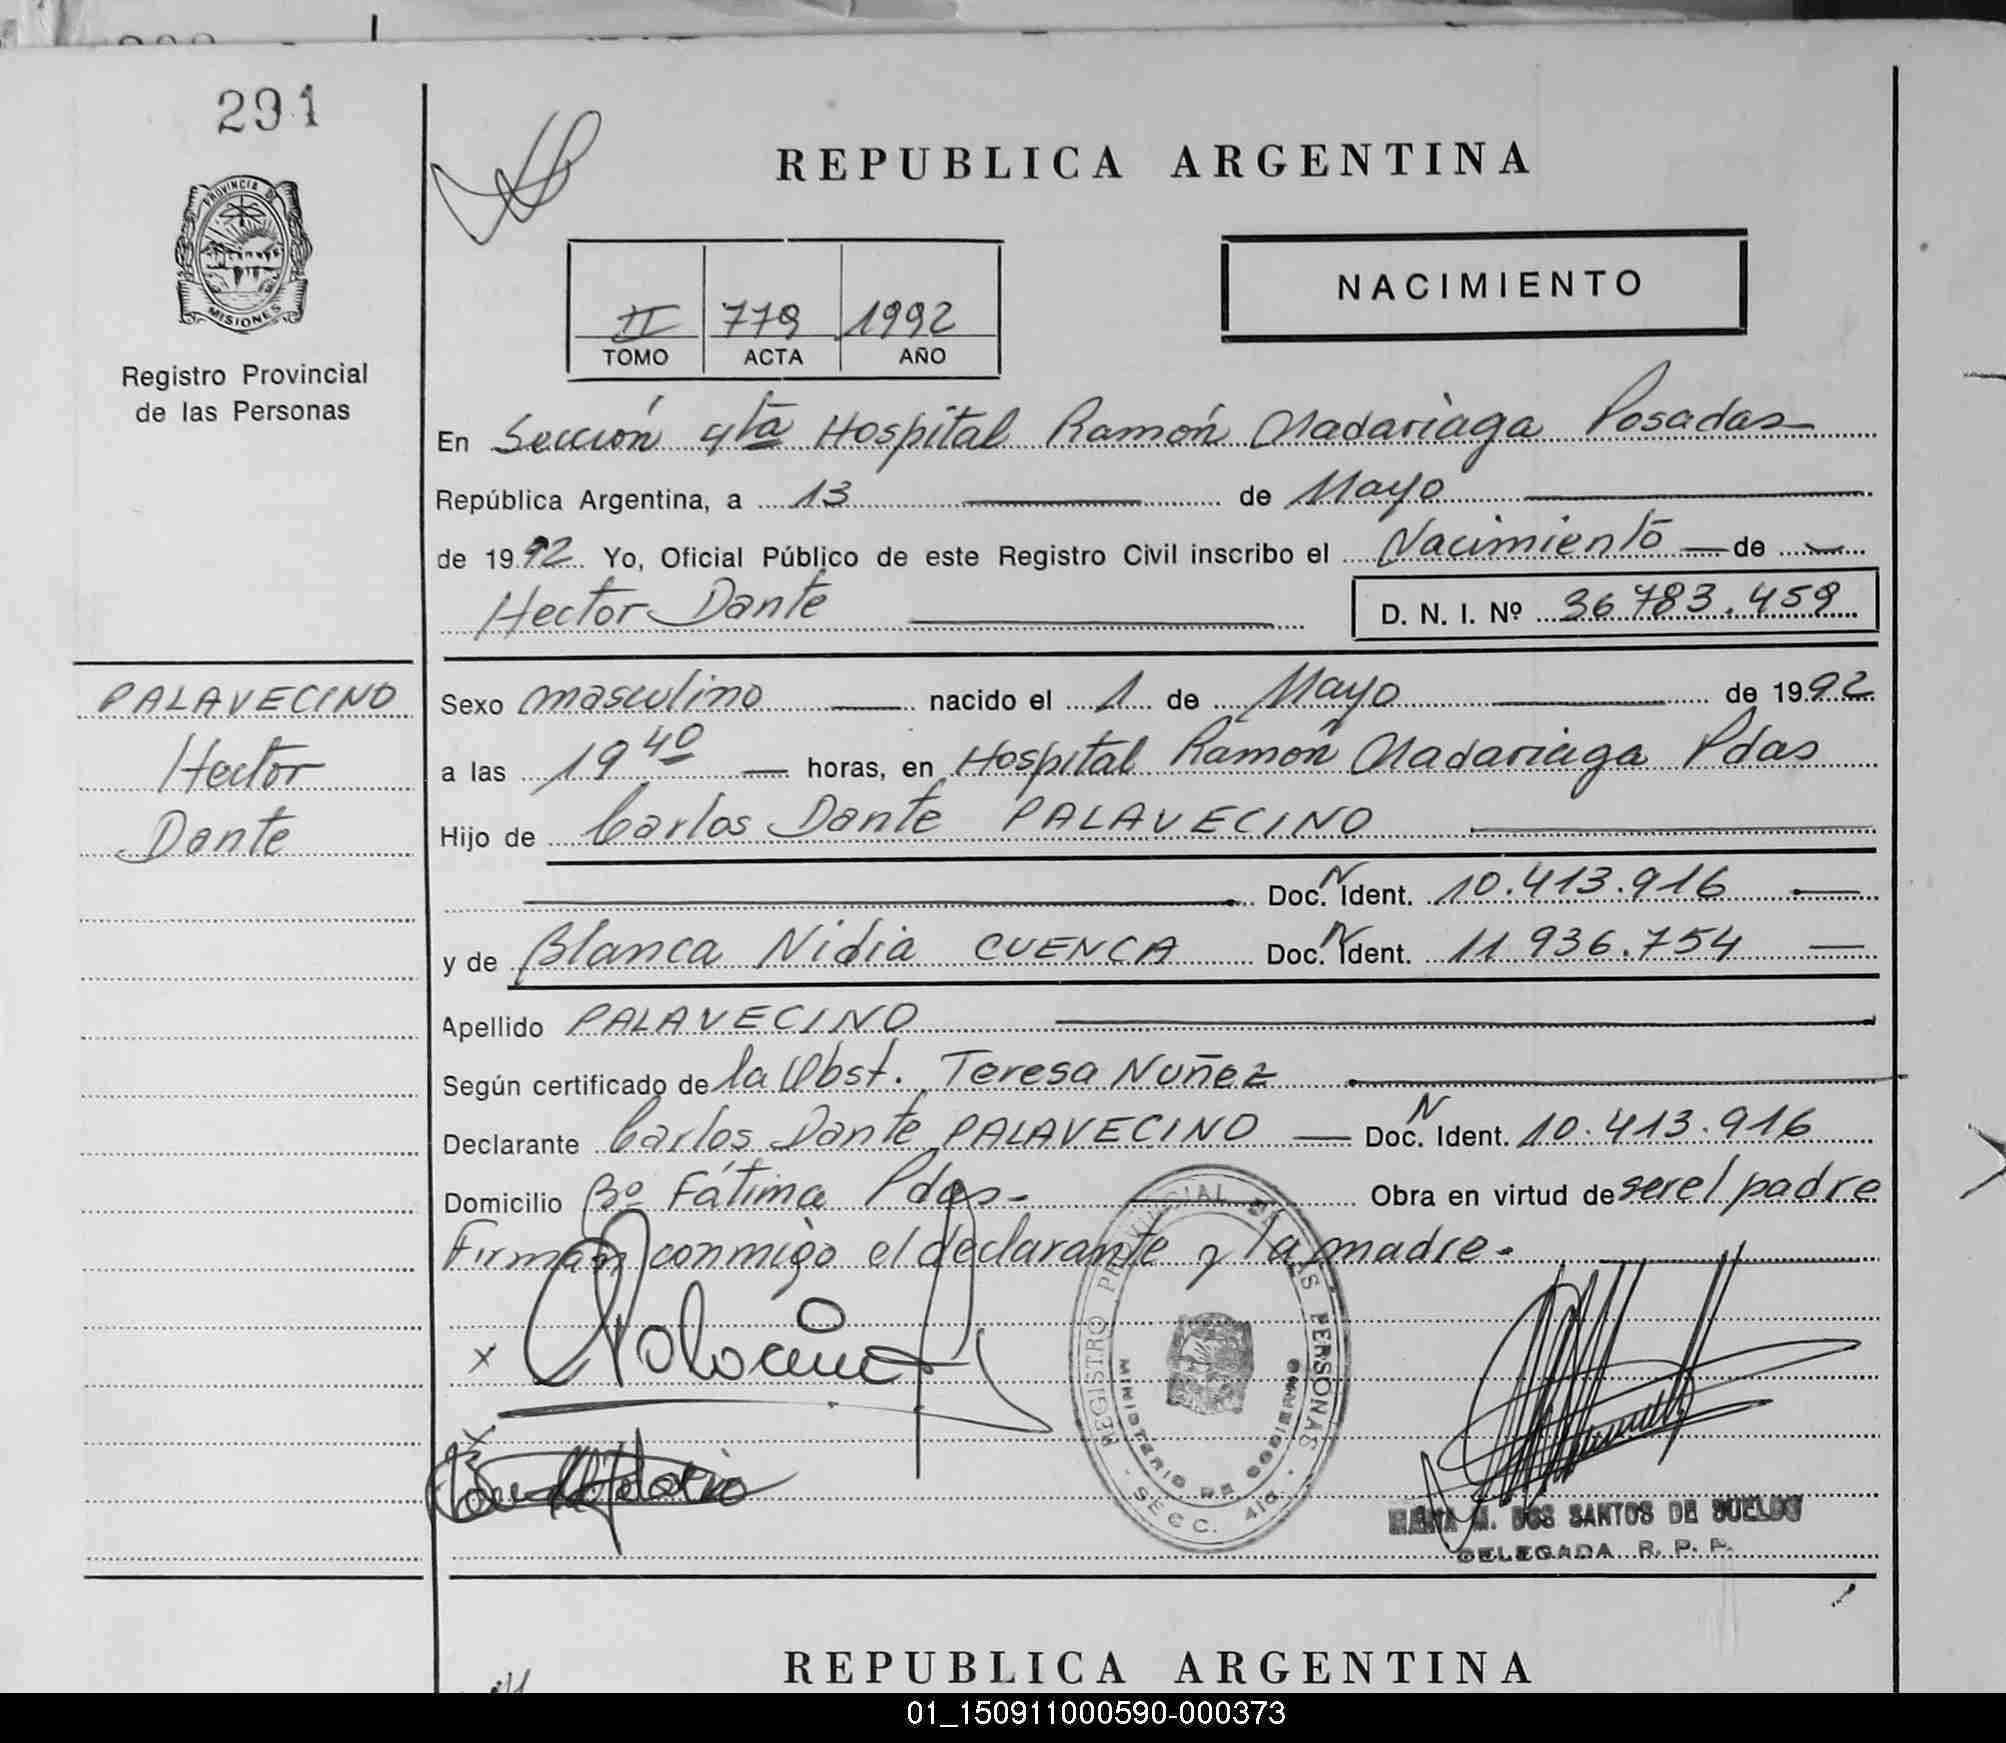 291
REPUBLICA ARGENTINA
PROVINCIA DE
MISIONES
Registro Provincial
de las Personas
II 779 1992
TOMO ACTA AÑO
NACIMIENTO
En Sección 4ta Hospital Ramón Madariaga Posadas
República Argentina, a 13 de Mayo
de 1992 Yo, Oficial Público de este Registro Civil inscribo el Nacimiento de
Hector Dante D. N. I. Nº 36.783.459
PALAVECINO
Hector
Dante
Sexo masculino nacido el 1 de Mayo de 1992
a las 19 40 horas, en Hospital Ramón Madariaga Pdas
Hijo de Carlos Dante PALAVECINO
Doc. N Ident. 10.413.916
y de Blanca Nidia CUENCA Doc. N Ident. 11.936.754
Apellido PALAVECINO
Según certificado de la Obst. Teresa Nuñez
Declarante Carlos Dante PALAVECINO Doc. N Ident. 10.413.916
Domicilio Bº Fátima Pdas- Obra en virtud de ser el padre
Firman conmigo el declarante y la madre.
REGISTRO PROVINCIAL DE LAS PERSONAS
MINISTERIO DE GOBIERNO
SECC. 4ta
M. DOS SANTOS DE SUELDO
DELEGADA R. P. P.
REPUBLICA ARGENTINA
01_150911000590-000373